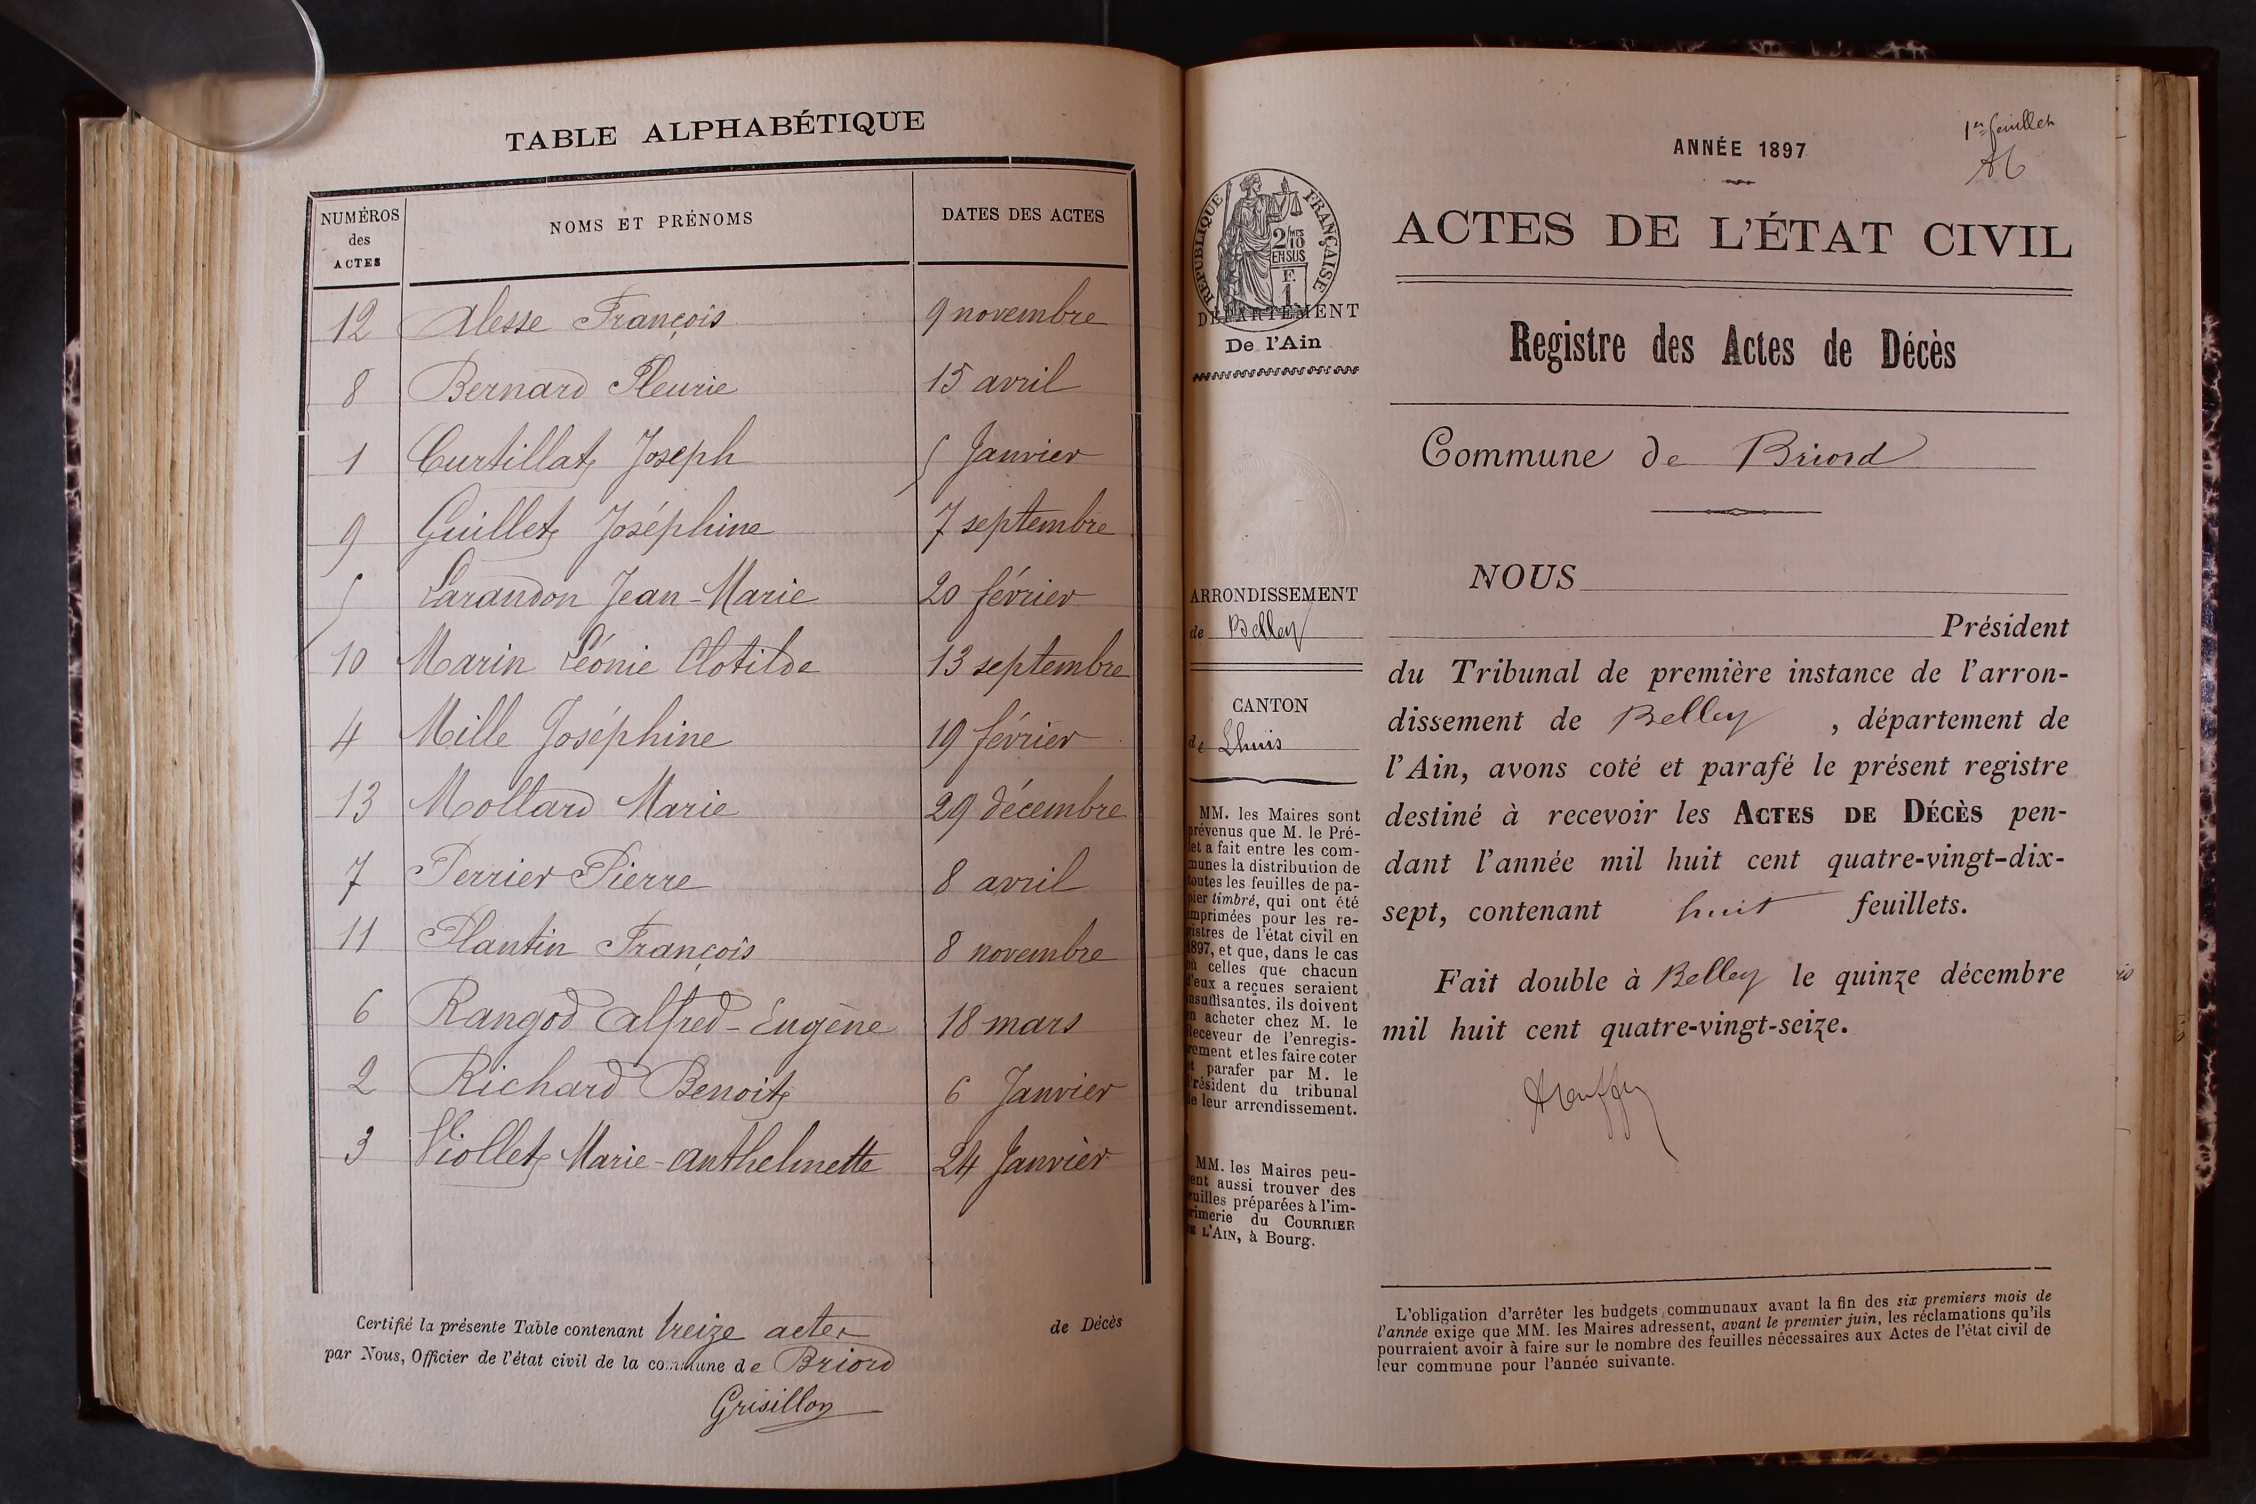 TABLE ALPHABÉTIQUE
NUMÉROS des ACTES NOMS ET PRÉNOMS DATES DES ACTES
12 Alesse François 9 novembre
8 Bernard Fleurie 15 avril
1 Curtillat Joseph 5 Janvier
9 Guillet Joséphine 7 septembre
5 Larandon Jean-Marie 20 février
10 Marin Léonie Clotilde 13 septembre
4 Mille Joséphine 19 février
13 Mollard Marie 29 décembre
7 Perrier Pierre 8 avril
11 Plantin François 8 novembre
6 Rangod Alfred-Eugène 18 mars
2 Richard Benoit 6 Janvier
3 Viollet Marie-Anthelmette 24 Janvier
Certifié la présente Table contenant treize actes de Décès
par Nous, Officier de l'état civil de la commune de Briord
Grisillon
1er feuillet
ANNÉE 1897
RÉPUBLIQUE FRANÇAISE
2/10
EN SUS
F.
1
DÉPARTEMENT
De l'Ain
ARRONDISSEMENT
de Belley
CANTON
de Lhuis
MM. les Maires sont
prévenus que M. le Pré-
fet a fait entre les com-
munes la distribution de
toutes les feuilles de pa-
pier timbré, qui ont été
imprimées pour les re-
gistres de l'état civil en
1897, et que, dans le cas
où celles que chacun
d'eux a reçues seraient
insuffisantes, ils doivent
en acheter chez M. le
Receveur de l'enregis-
trement et les faire coter
et parafer par M. le
Président du tribunal
de leur arrondissement.
MM. les Maires peu-
vent aussi trouver des
feuilles préparées à l'im-
primerie du COURRIER
DE L'AIN, à Bourg.
ACTES DE L'ÉTAT CIVIL
Registre des Actes de Décès
Commune de Briord
NOUS
Président
du Tribunal de première instance de l'arron-
dissement de Belley , département de
l'Ain, avons coté et parafé le présent registre
destiné à recevoir les ACTES DE DÉCÈS pen-
dant l'année mil huit cent quatre-vingt-dix-
sept, contenant huit feuillets.
Fait double à Belley le quinze décembre
mil huit cent quatre-vingt-seize.
L'obligation d'arrêter les budgets communaux avant la fin des six premiers mois de
l'année exige que MM. les Maires adressent, avant le premier juin, les réclamations qu'ils
pourraient avoir à faire sur le nombre des feuilles nécessaires aux Actes de l'état civil de
leur commune pour l'année suivante.